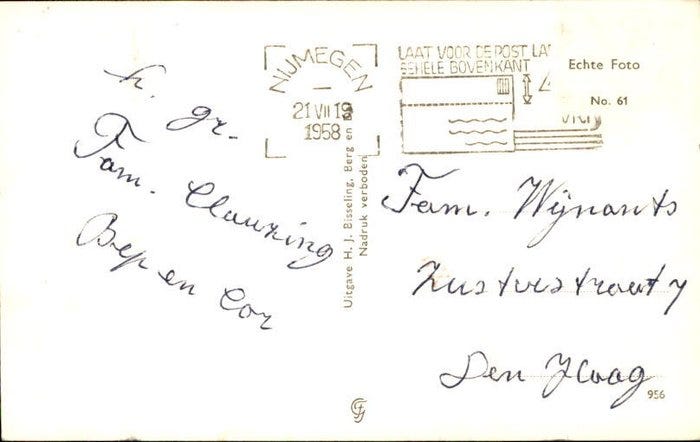 h. gr.
Fam. Clauzing
Bep en Cor
NIJMEGEN
21 VII 19
1958
LAAT VOOR DE POST
GEHELE BOVENKANT
4
Echte Foto
No. 61
Uitgave H. J. Bisseling, Berg en
Nadruk verboden
Fam. Wijnants
Den Haag
956